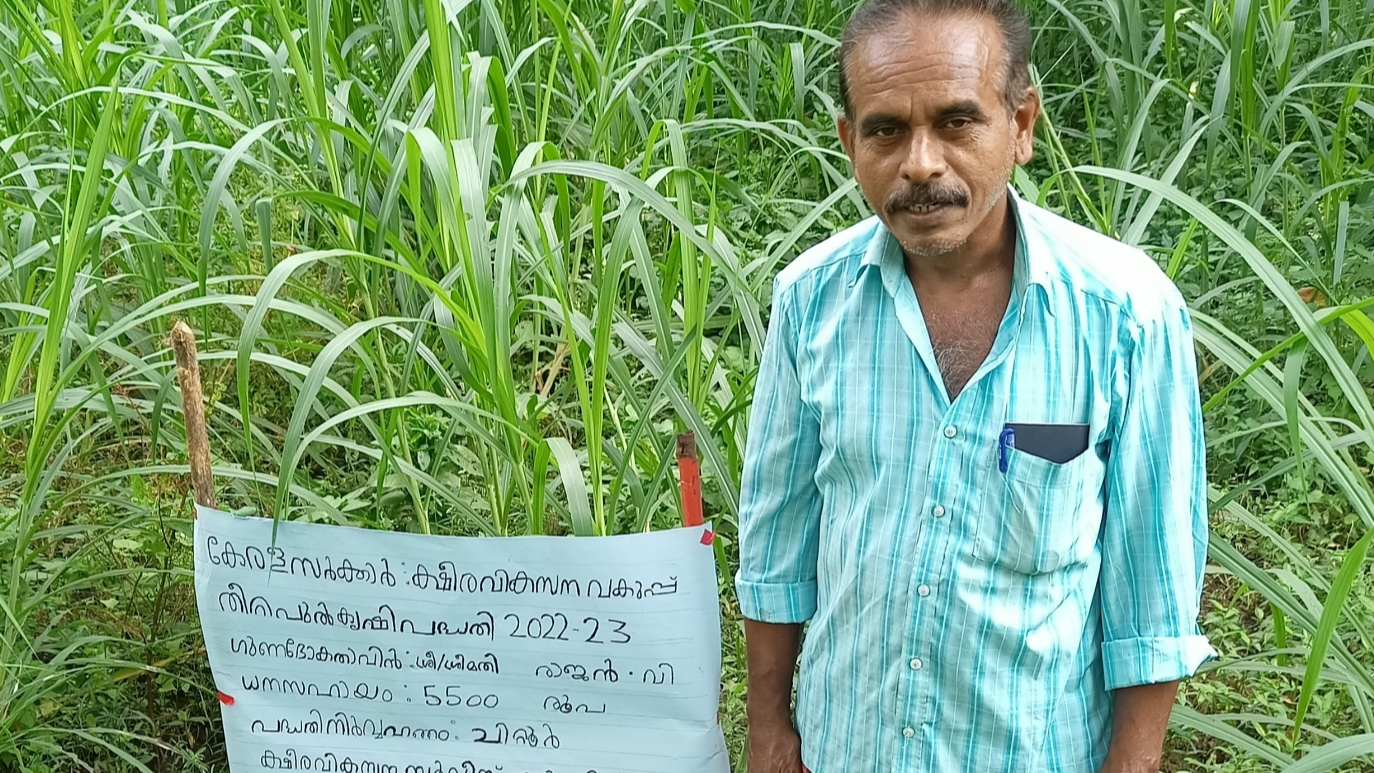 കേരള സർക്കാർ : ക്ഷീരവികസന വകുപ്പ്
തീറ്റപുൽകൃഷി പദ്ധതി 2022-23
ഗുണഭോക്താവിൻ : ശ്രീ/ശ്രീമതി രാജൻ . വി
ധനസഹായം : 5500 രൂപ
പദ്ധതി നിർവ്വഹണം : ചിറ്റൂർ
ക്ഷീരവികസന